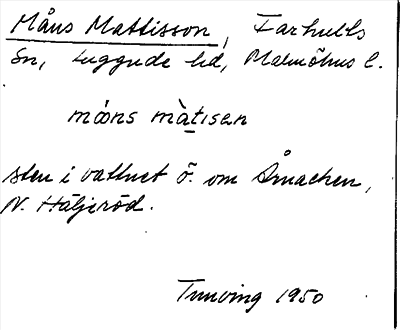 Måns Mattisson, Farhults
Sn, Luggude hd, Malmöhus l.
måns màtısen
sten i vattnet ö. om Ånacken,
N. Häljeröd.
1950